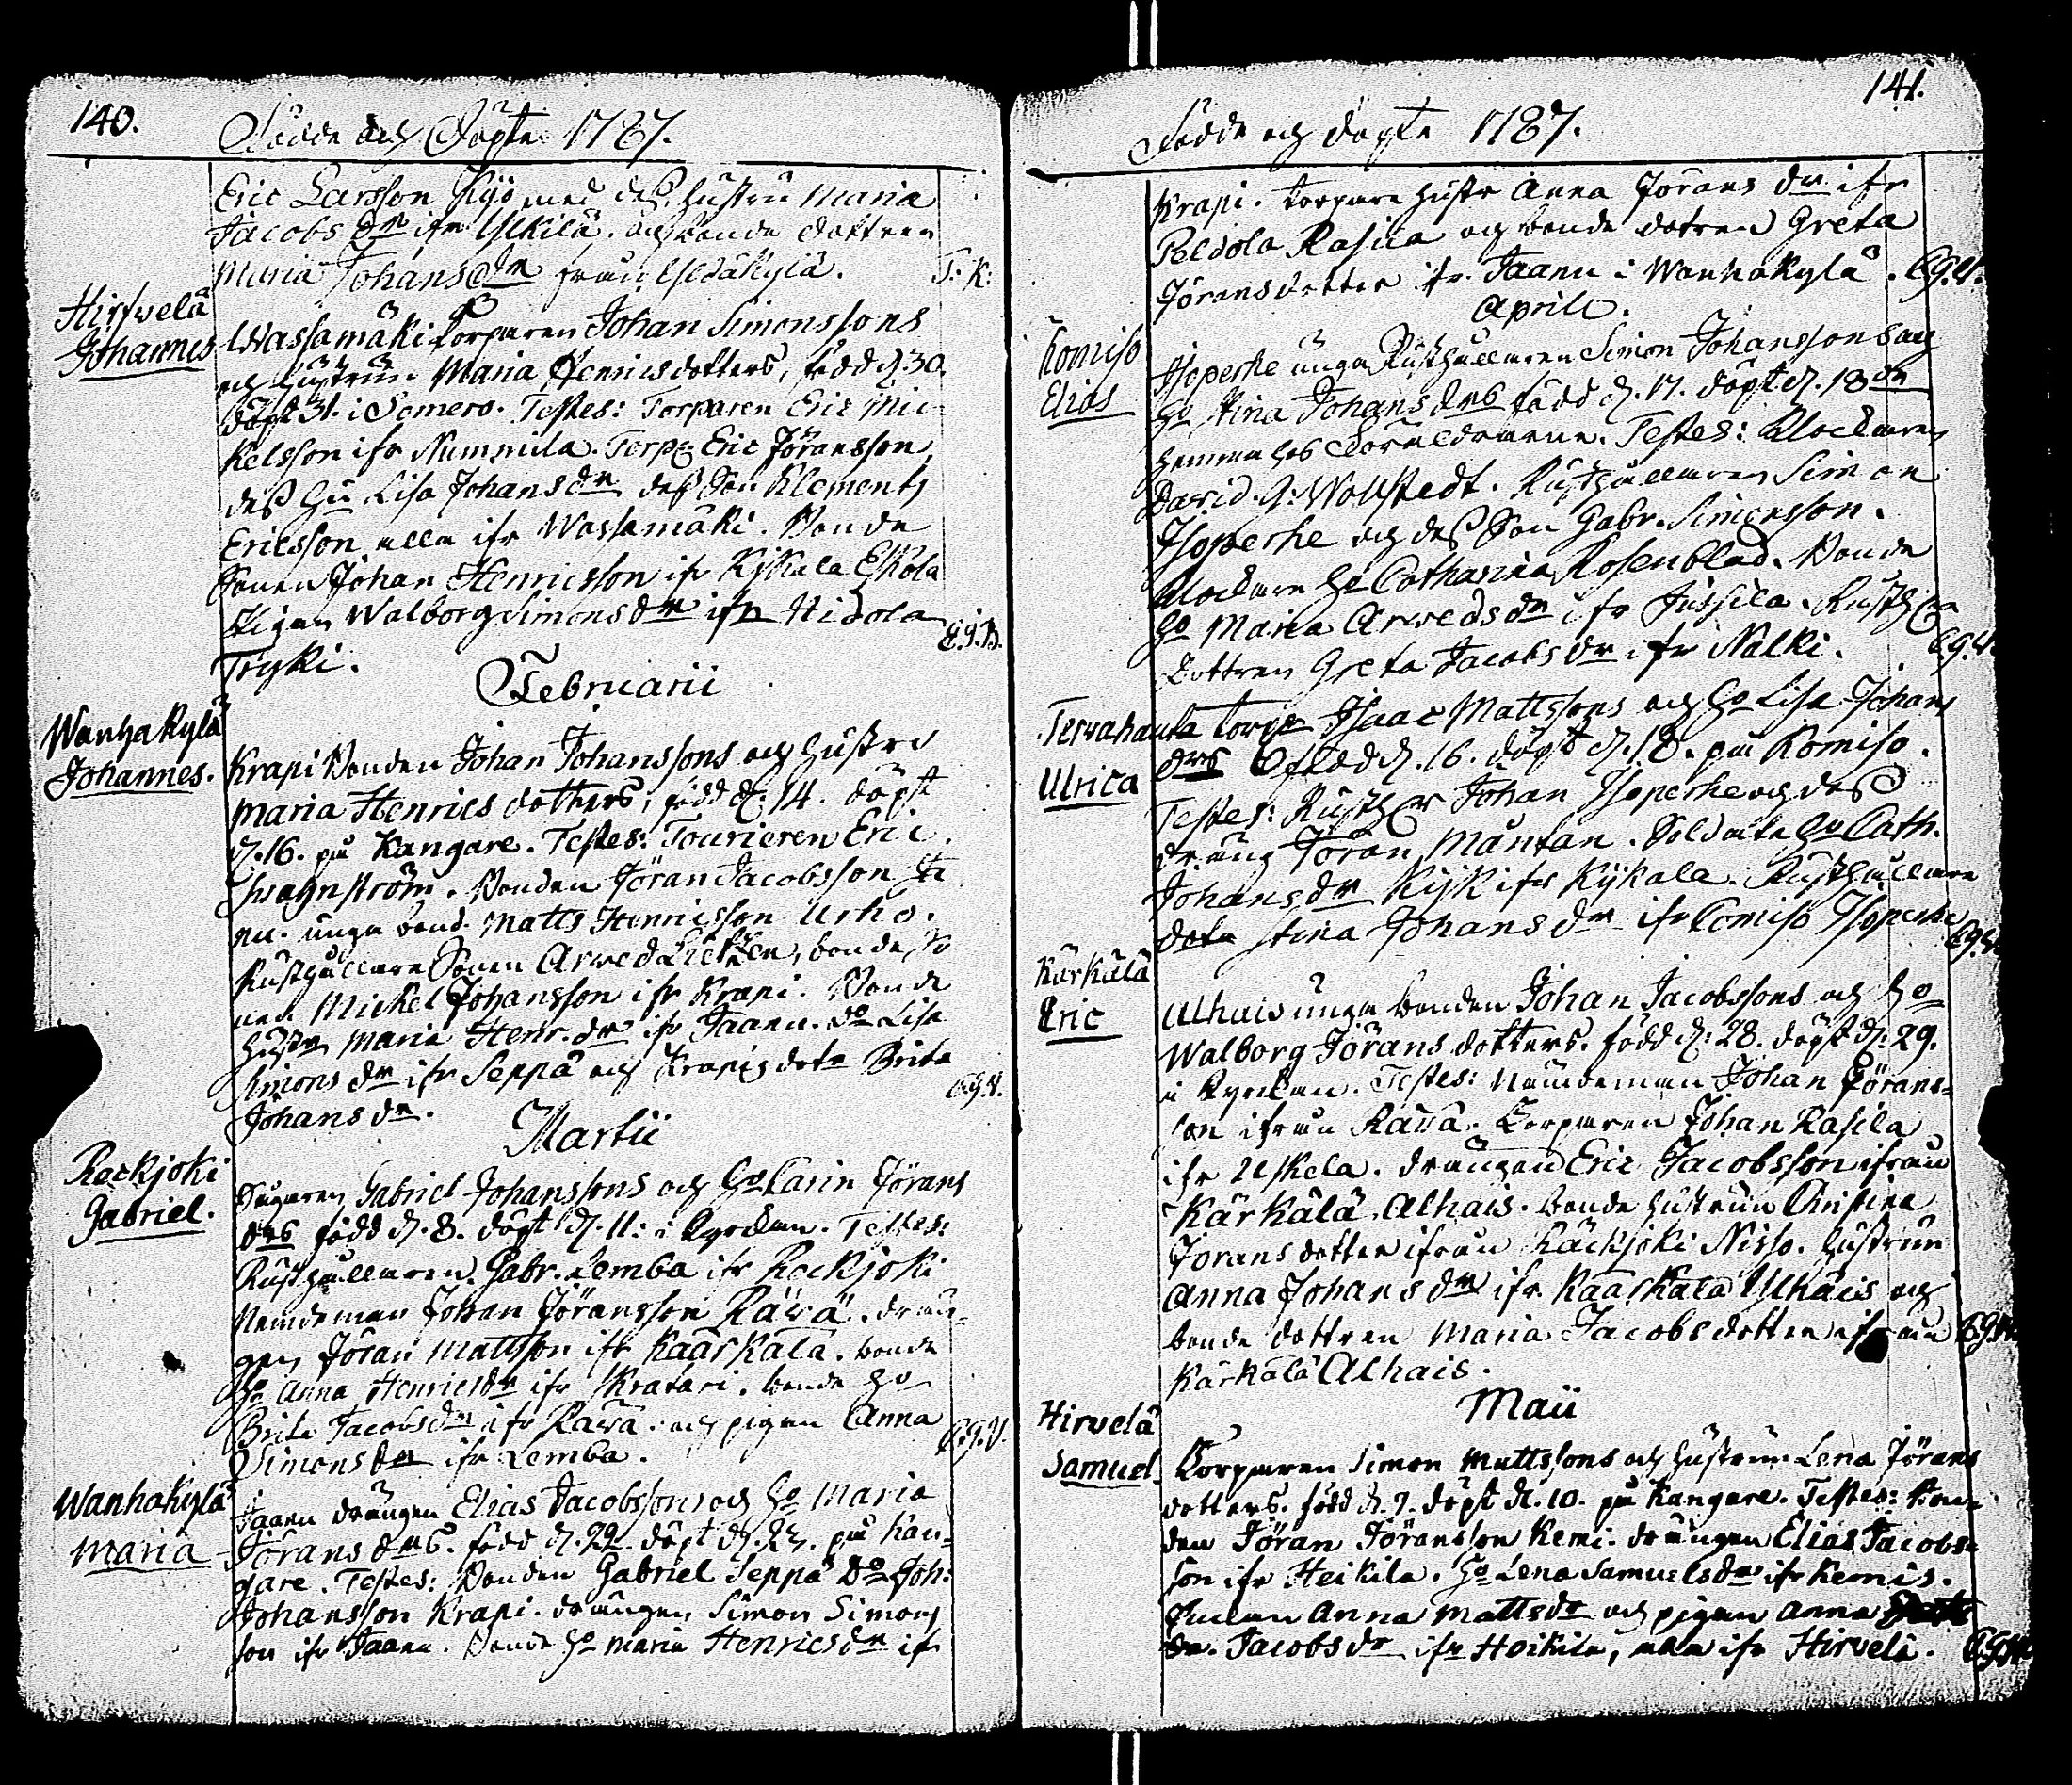 140.
Födde och Döpte 1787.
Eric Larsson Kyö med dess hustru Maria
Jacobs dr ifr Uskilä. och bonde dottren
Maria Johans dr från Yldäkylä. T. K:
Hirfvelä
Johannes
Wassamäki Torparen Johan Simonssons
och hustrun Maria Henricsdotters, född d. 30.
döpt 31. i Somero. Testes: Torparen Eric Mic-
kelsson ifr Nummila. Torp. Eric Jöransson,
dess hu Lisa Johans dr dess Son Klements
Ericsson alla ifr Wassamäki. Bonde
Sonen Johan Henricsson ifr Kykala Eskola
Pigan Walborg Simons dr ifr Hidola
Tryki. E.G.V.
Februarii
Wanhakylä
Johannes.
Krapi Bonden Johan Johanssons och hustru
Maria Henrics dotters, född d. 14. döpt
d. 16. på Kangare. Testes: Fourieren Eric
Svahnström. Bonden Jöran Jacobsson
unga bond. Matts Henricsson Urho.
Rusthållare Sonen Arved bonde So
nen Mickel Johansson ifr Krapi. Bonde
hustr Maria Henr. dr ifr Taanu. do Lisa
Simons dr ifr Seppä och Krapis dotr Brita
Johans dr. E.G.V.
Martii
Räckjoki
Gabriel.
Gabriel Johanssons och Ho Carin Jörans
drs född d. 8. döpt d. 11: i Kyrckan. Testes:
Rusthållaren Gabr. Lemba ifr Räckjoki
Nämdeman Johan Jöransson Räwä. drän-
gen Jöran Mattsson ifr Kaarkälä. bonde
Ho Anna Henricsdr ifr Skratari. bonde Ho
Brita Jacobsdr ifr Räwä. och pigan Anna
Simons dr ifr Lemba. E.G.V.
Wanhakylä
Maria
Taanu drängen Elias Jacobssons och Ho Maria
Jörans drs. född d. 22. döpt d. 23. på Kan-
gare. Testes: Bonden Gabriel Seppä Do Joh:
Johansson Krapi. drängen Simon Simons
son ifr Taanu. Bonde Ho Maria Henricsdr ifr
141.
Födde och döpte 1787.
Krapi. torpare hustr Anna Jörans dr ifr
Peldola Rasila och bonde dotren Greta
Jöransdotter ifr. Taanu i Wanhakylä. E.G.V.
Aprill.
Komiso
Elias
Isoperhe unga Rusthållaren Simon Johanssons och
Ho Stina Johans drs född d. 17. döpt d. 18de
hemma hos Föräldrarne. Testes: Klockaren
David. G. Wallstedt. Rusthållaren Simon
Isoperhe och dess Son Gabr. Simonsson.
Klockare Ho Catharina Rosenblad. Bonde
Ho Maria Arveds dr ifr Jussila. Rusth
dottren Greta Jacobs dr ifr Nälki. E.G.V.
Tervahauta
Ulrica
Torpr Isaac Mattssons och Ho Lisa Johans
drs född d. 16. döpt d. 18. på Komiso.
Testes: Rusth Johan Isoperhe och dess
dräng Jöran Mäntan. Soldats Ho Cath.
Johans dr Kijk ifr Kykala. Rusthållare
dotr Stina Johans dr ifr Comiso Isoperhe E.G.V.
Kärkälä
Eric
Alhais unga bonden Johan Jacobssons och Ho
Walborg Jörans dotters. född d: 28. döpt d. 29.
i Kyrckan. Testes: Nämdeman Johan Jörans-
son ifrån Räwä. Torparen Johan Rasila
ifr Uskela. drängen Eric Jacobsson ifrån
Kärkälä Alhais. bonde hustrun Christina
Jörans dotter ifrån Räckjoki Nisso. hustrun
Anna Johans dr ifr Kaarkälä Ylhäis och
bonde dottren Maria Jacobs dotter ifrån E.G.V.
Kärkälä Alhais.
Maii
Hirvelä
Samuel.
Torparen Simon Mattssons och hustrun Lena Jörans
dotters. född d. 9. döpt d. 10. på Kangare. Testes: Bon-
den Jöran Jöransson Kemi. drängen Elias Jacobs-
son ifr Heikila. Ho Lena Samuels dr ifr Kemis.
Anna Matts dr och pigan Anna
Jacobs dr ifr Heikila, alla ifr Hirvelä. E.G.V.